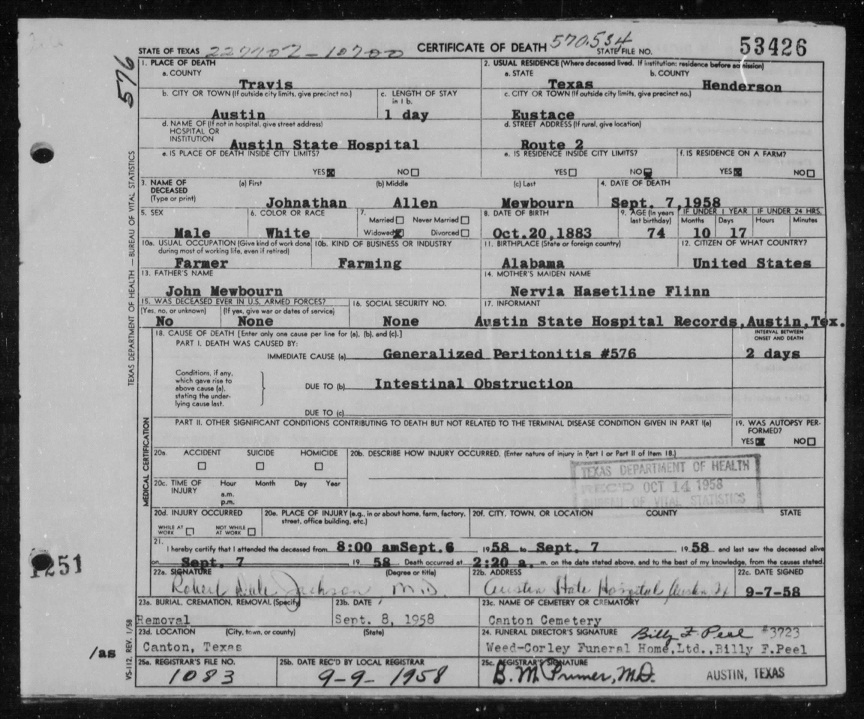 STATE OF TEXAS 227702-10700 CERTIFICATE OF DEATH 570.534 STATE FILE NO. 53426
576
1. PLACE OF DEATH
a. COUNTY Travis
2. USUAL RESIDENCE (Where deceased lived. If institution: residence before admission)
a. STATE Texas b. COUNTY Henderson
b. CITY OR TOWN (If outside city limits, give precinct no.) Austin
c. LENGTH OF STAY in 1 b. 1 day
c. CITY OR TOWN (If outside city limits, give precinct no.) Eustace
d. NAME OF (If not in hospital, give street address) HOSPITAL OR INSTITUTION Austin State Hospital
d. STREET ADDRESS (If rural, give location) Route 2
e. IS PLACE OF DEATH INSIDE CITY LIMITS? YES☒ NO☐
e. IS RESIDENCE INSIDE CITY LIMITS? YES☐ NO☒
f. IS RESIDENCE ON A FARM? YES☒ NO☐
3. NAME OF DECEASED (Type or print) (a) First Johnathan (b) Middle Allen (c) Last Mewbourn
4. DATE OF DEATH Sept. 7,1958
5. SEX Male
6. COLOR OR RACE White
7. Married☐ Never Married☐ Widowed☒ Divorced☐
8. DATE OF BIRTH Oct.20,1883
9. AGE (In years last birthday) 74
IF UNDER 1 YEAR Months 10 Days 17
IF UNDER 24 HRS. Hours Minutes
10a. USUAL OCCUPATION (Give kind of work done during most of working life, even if retired) Farmer
10b. KIND OF BUSINESS OR INDUSTRY Farming
11. BIRTHPLACE (State or foreign country) Alabama
12. CITIZEN OF WHAT COUNTRY? United States
13. FATHER'S NAME John Mewbourn
14. MOTHER'S MAIDEN NAME Nervia Hasetline Flinn
15. WAS DECEASED EVER IN U.S. ARMED FORCES?
(Yes, no, or unknown) No (If yes, give war or dates of service) None
16. SOCIAL SECURITY NO. None
17. INFORMANT Austin State Hospital Records,Austin,Tex.
18. CAUSE OF DEATH [Enter only one cause per line for (a), (b), and (c).]
INTERVAL BETWEEN ONSET AND DEATH
PART I. DEATH WAS CAUSED BY:
IMMEDIATE CAUSE (a) Generalized Peritonitis #576 2 days
Conditions, if any, which gave rise to above cause (a), stating the underlying cause last.
DUE TO (b) Intestinal Obstruction
DUE TO (c)
PART II. OTHER SIGNIFICANT CONDITIONS CONTRIBUTING TO DEATH BUT NOT RELATED TO THE TERMINAL DISEASE CONDITION GIVEN IN PART I(a)
19. WAS AUTOPSY PERFORMED? YES☒ NO☐
20a. ACCIDENT ☐ SUICIDE ☐ HOMICIDE ☐
20b. DESCRIBE HOW INJURY OCCURRED. (Enter nature of injury in Part I or Part II of item 18.)
20c. TIME OF INJURY Hour a.m. p.m. Month Day Year
TEXAS DEPARTMENT OF HEALTH
REC'D OCT 14 1958
BUREAU OF VITAL STATISTICS
20d. INJURY OCCURRED WHILE AT WORK ☐ NOT WHILE AT WORK ☐
20e. PLACE OF INJURY (e.g., in or about home, farm, factory, street, office building, etc.)
20f. CITY, TOWN, OR LOCATION COUNTY STATE
21. I hereby certify that I attended the deceased from 8:00 am Sept.6 1958 to Sept. 7 1958 and last saw the deceased alive
on Sept. 7 19 58 Death occurred at 2:20 a. m. on the date stated above, and to the best of my knowledge, from the causes stated.
22a. SIGNATURE (Degree or title) Jackson M.D.
22b. ADDRESS Austin State Hospital, Austin Tx
22c. DATE SIGNED 9-7-58
23a. BURIAL, CREMATION, REMOVAL (Specify) Removal
23b. DATE Sept. 8, 1958
23c. NAME OF CEMETERY OR CREMATORY Canton Cemetery
23d. LOCATION (City, town, or county) (State) Canton, Texas
24. FUNERAL DIRECTOR'S SIGNATURE Billy F. Peel #3723
Weed-Corley Funeral Home,Ltd.,Billy F.Peel
25a. REGISTRAR'S FILE NO. 1083
25b. DATE REC'D BY LOCAL REGISTRAR 9-9-1958
25c. REGISTRAR'S SIGNATURE B.M. Primer, M.D. AUSTIN, TEXAS
TEXAS DEPARTMENT OF HEALTH—BUREAU OF VITAL STATISTICS
MEDICAL CERTIFICATION
1251
/as
VS-112, REV. 1/58